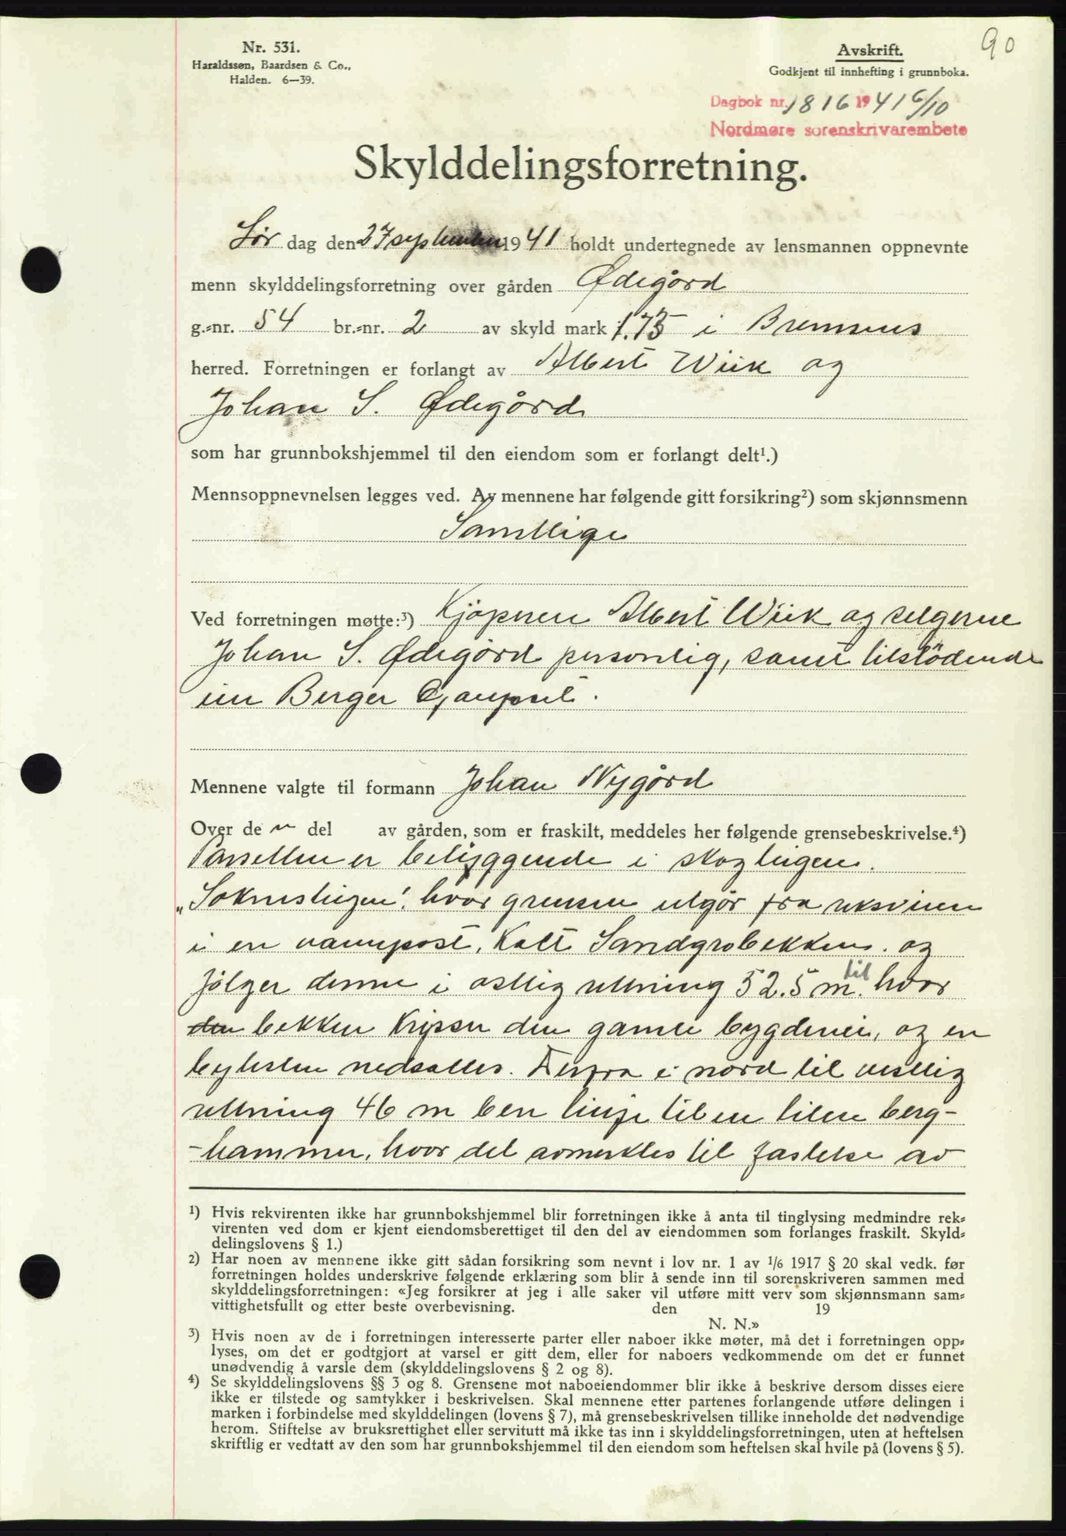 90
Nr. 531.
Haraldssøn, Baardsen & Co.,
Halden. 6—39.
Avskrift.
Godkjent til innhefting i grunnboka.
Dagbok nr. 1816 1941 6/10
Nordmøre sorenskrivarembete
Skylddelingsforretning.
Lør dag den 27 september 1941 holdt undertegnede av lensmannen oppnevnte
menn skylddelingsforretning over gården Ødegård
g.=nr. 54 br.=nr. 2 av skyld mark 1.75 i Bremsnes
herred. Forretningen er forlangt av Albert Wiik og
Johan S. Ødegård
som har grunnbokshjemmel til den eiendom som er forlangt delt¹.)
Mennsoppnevnelsen legges ved. Av mennene har følgende gitt forsikring²) som skjønnsmenn
Samtlige
Ved forretningen møtte:³) Kjøperen Albert Wiik og selgerne
Johan S. Ødegård personlig, samt tilstødende
eier Berger
Mennene valgte til formann Johan Nygård
Over de n del av gården, som er fraskilt, meddeles her følgende grensebeskrivelse.⁴)
Parsellen er beliggende i skogteigen.
hvor grensen utgår fra
i en vannpost, kalt Sandgrobekken. og
følger denne i østlig retning 52.5 m. til hvor
den bekken krysser den gamle bygdevei, og en
nedsattes. Derfra i nord til vestlig
retning 46 m ben linje til en liten berg-
-hammer, hvor det avmerktes til fastelse av
¹) Hvis rekvirenten ikke har grunnbokshjemmel blir forretningen ikke å anta til tinglysing medmindre rek=
virenten ved dom er kjent eiendomsberettiget til den del av eiendommen som forlanges fraskilt. Skyld=
delingslovens § 1.)
²) Har noen av mennene ikke gitt sådan forsikring som nevnt i lov nr. 1 av 1/6 1917 § 20 skal vedk. før
forretningen holdes underskrive følgende erklæring som blir å sende inn til sorenskriveren sammen med
skylddelingsforretningen: «Jeg forsikrer at jeg i alle saker vil utføre mitt verv som skjønnsmann sam=
vittighetsfullt og etter beste overbevisning. den 19
N. N.»
³) Hvis noen av de i forretningen interesserte parter eller naboer ikke møter, må det i forretningen opp=
lyses, om det er godtgjort at varsel er gitt dem, eller for naboers vedkommende om det er funnet
unødvendig å varsle dem (skylddelingslovens § 2 og 8).
⁴) Se skylddelingslovens §§ 3 og 8. Grensene mot naboeiendommer blir ikke å beskrive dersom disses eiere
ikke er tilstede og samtykker i beskrivelsen. Skal mennene etter partenes forlangende utføre delingen i
marken i forbindelse med skylddelingen (lovens § 7), må grensebeskrivelsen tillike inneholde det nødvendige
herom. Stiftelse av bruksrettighet eller servitutt må ikke tas inn i skylddelingsforretningen, uten at heftelsen
skriftlig er vedtatt av den som har grunnbokshjemmel til den eiendom som heftelsen skal hvile på (lovens § 5).